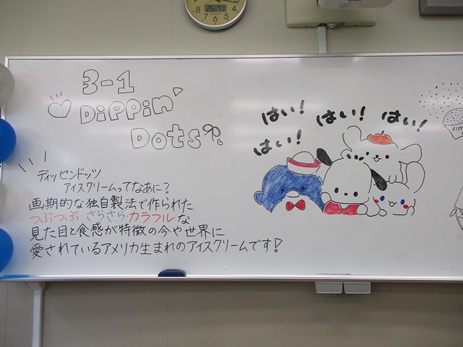 3-1
Dippin'
Dots
ディッピンドッツ
アイスクリームってなあに？
画期的な独自製法で作られた
つぶつぶ・さらさら・カラフルな
見た目と食感が特徴の今や世界に
愛されているアメリカ生まれのアイスクリームです！
はい！
はい！
はい！
はい！